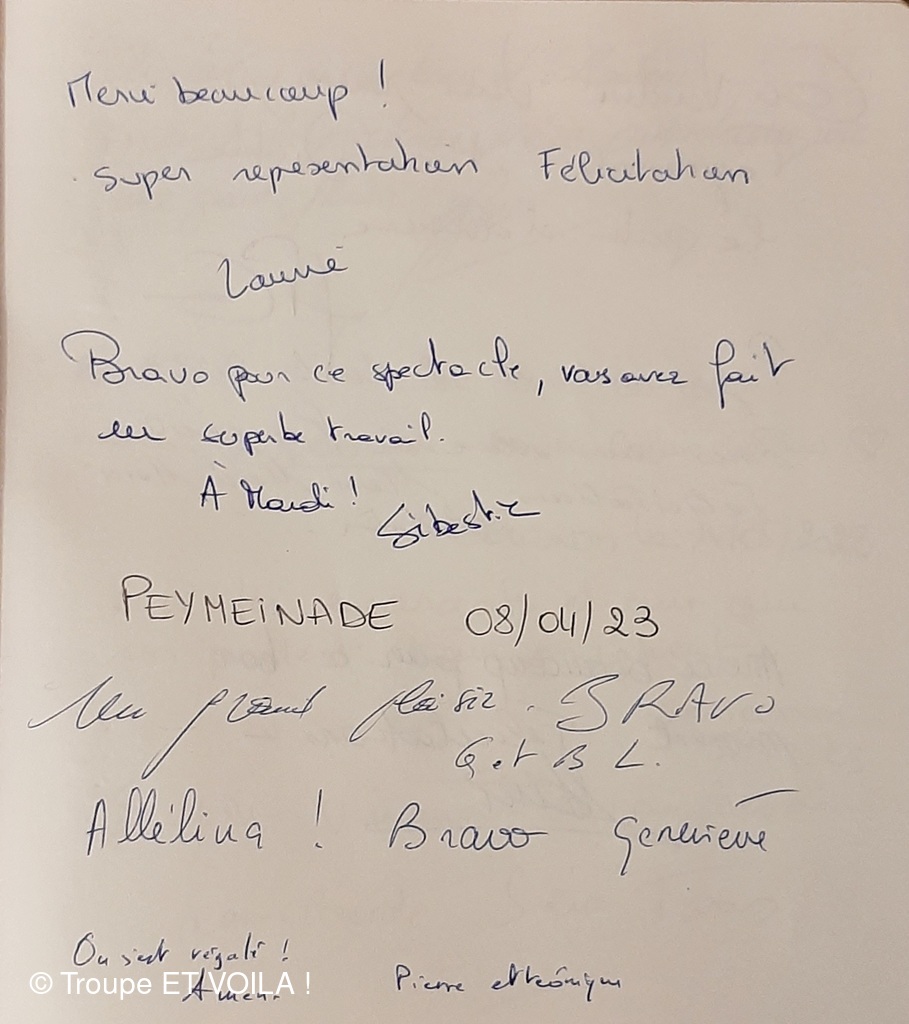 Merci beaucoup !
Super representation Félicitation
Bravo pour ce spectacle, vous avez fait
un superbe travail.
À Mardi !
PEYMEINADE 08/04/23
Un grand plaisir. BRAVO
G et B L.
Alléliua ! Bravo Geneviève
On s'est régalé !
Pierre et Véronique
© Troupe ET VOILA !